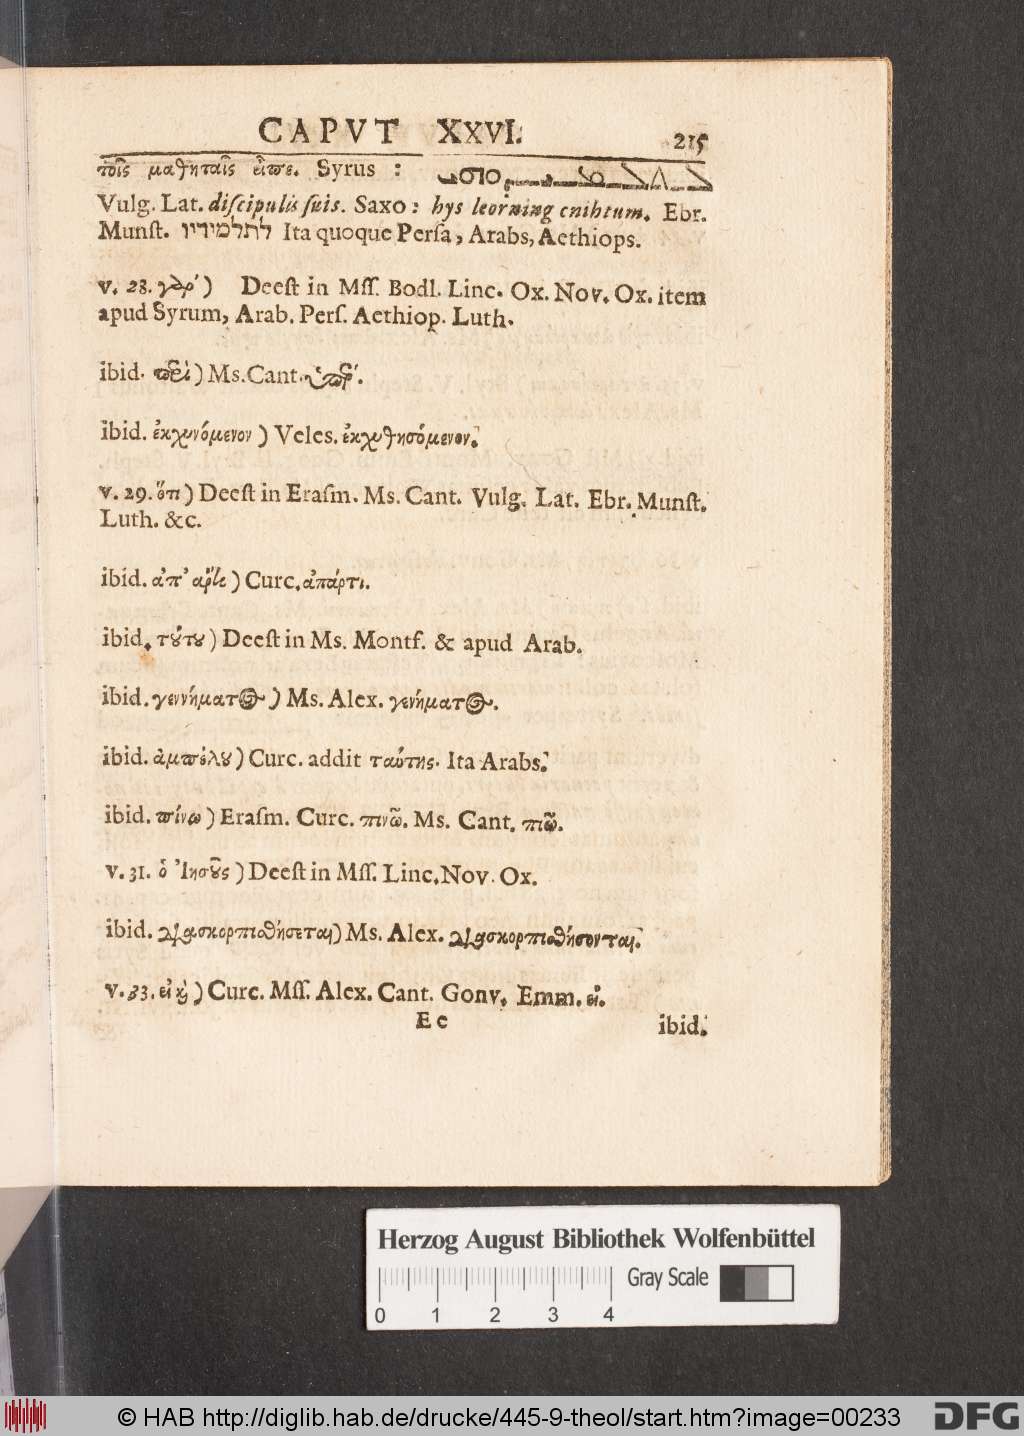 CAPVT XXVI. 215
τοῖς μαθηταῖς εἶπε. Syrus : ܠܬܠܡܝܕܘܗܝ
Vulg. Lat. diſcipulis ſuis. Saxo: hys leorning cnihtum. Ebr.
Munſt. לתלמידיו Ita quoque Perſa, Arabs, Aethiops.
v. 28. γὰρ) Deeſt in Mſſ. Bodl. Linc. Ox. Nov. Ox. item
apud Syrum, Arab. Perſ. Aethiop. Luth.
ibid. περὶ) Ms. Cant. ὑπὲρ.
ibid. ἐκχυνόμενον) Veles. ἐκχυθησόμενον.
v. 29. ὅτι) Deeſt in Eraſm. Ms. Cant. Vulg. Lat. Ebr. Munſt.
Luth. &c.
ibid. ἀπ' ἄρτι) Curc. ἀπάρτι.
ibid. τούτου) Deeſt in Ms. Montf. & apud Arab.
ibid. γεννήματος) Ms. Alex. γενήματος.
ibid. ἀμπέλου) Curc. addit ταύτης. Ita Arabs.
ibid. πίνω) Eraſm. Curc. πινῶ. Ms. Cant. πιῶ.
v. 31. ὁ Ἰησοῦς) Deeſt in Mſſ. Linc. Nov. Ox.
ibid. διασκορπισθήσεται) Ms. Alex. διασκορπισθήσονται.
v. 33. εἰ καὶ) Curc. Mſſ. Alex. Cant. Gonv. Emm. εἰ.
Ee ibid.
Herzog August Bibliothek Wolfenbüttel
Gray Scale
0 1 2 3 4
© HAB http://diglib.hab.de/drucke/445-9-theol/start.htm?image=00233 DFG